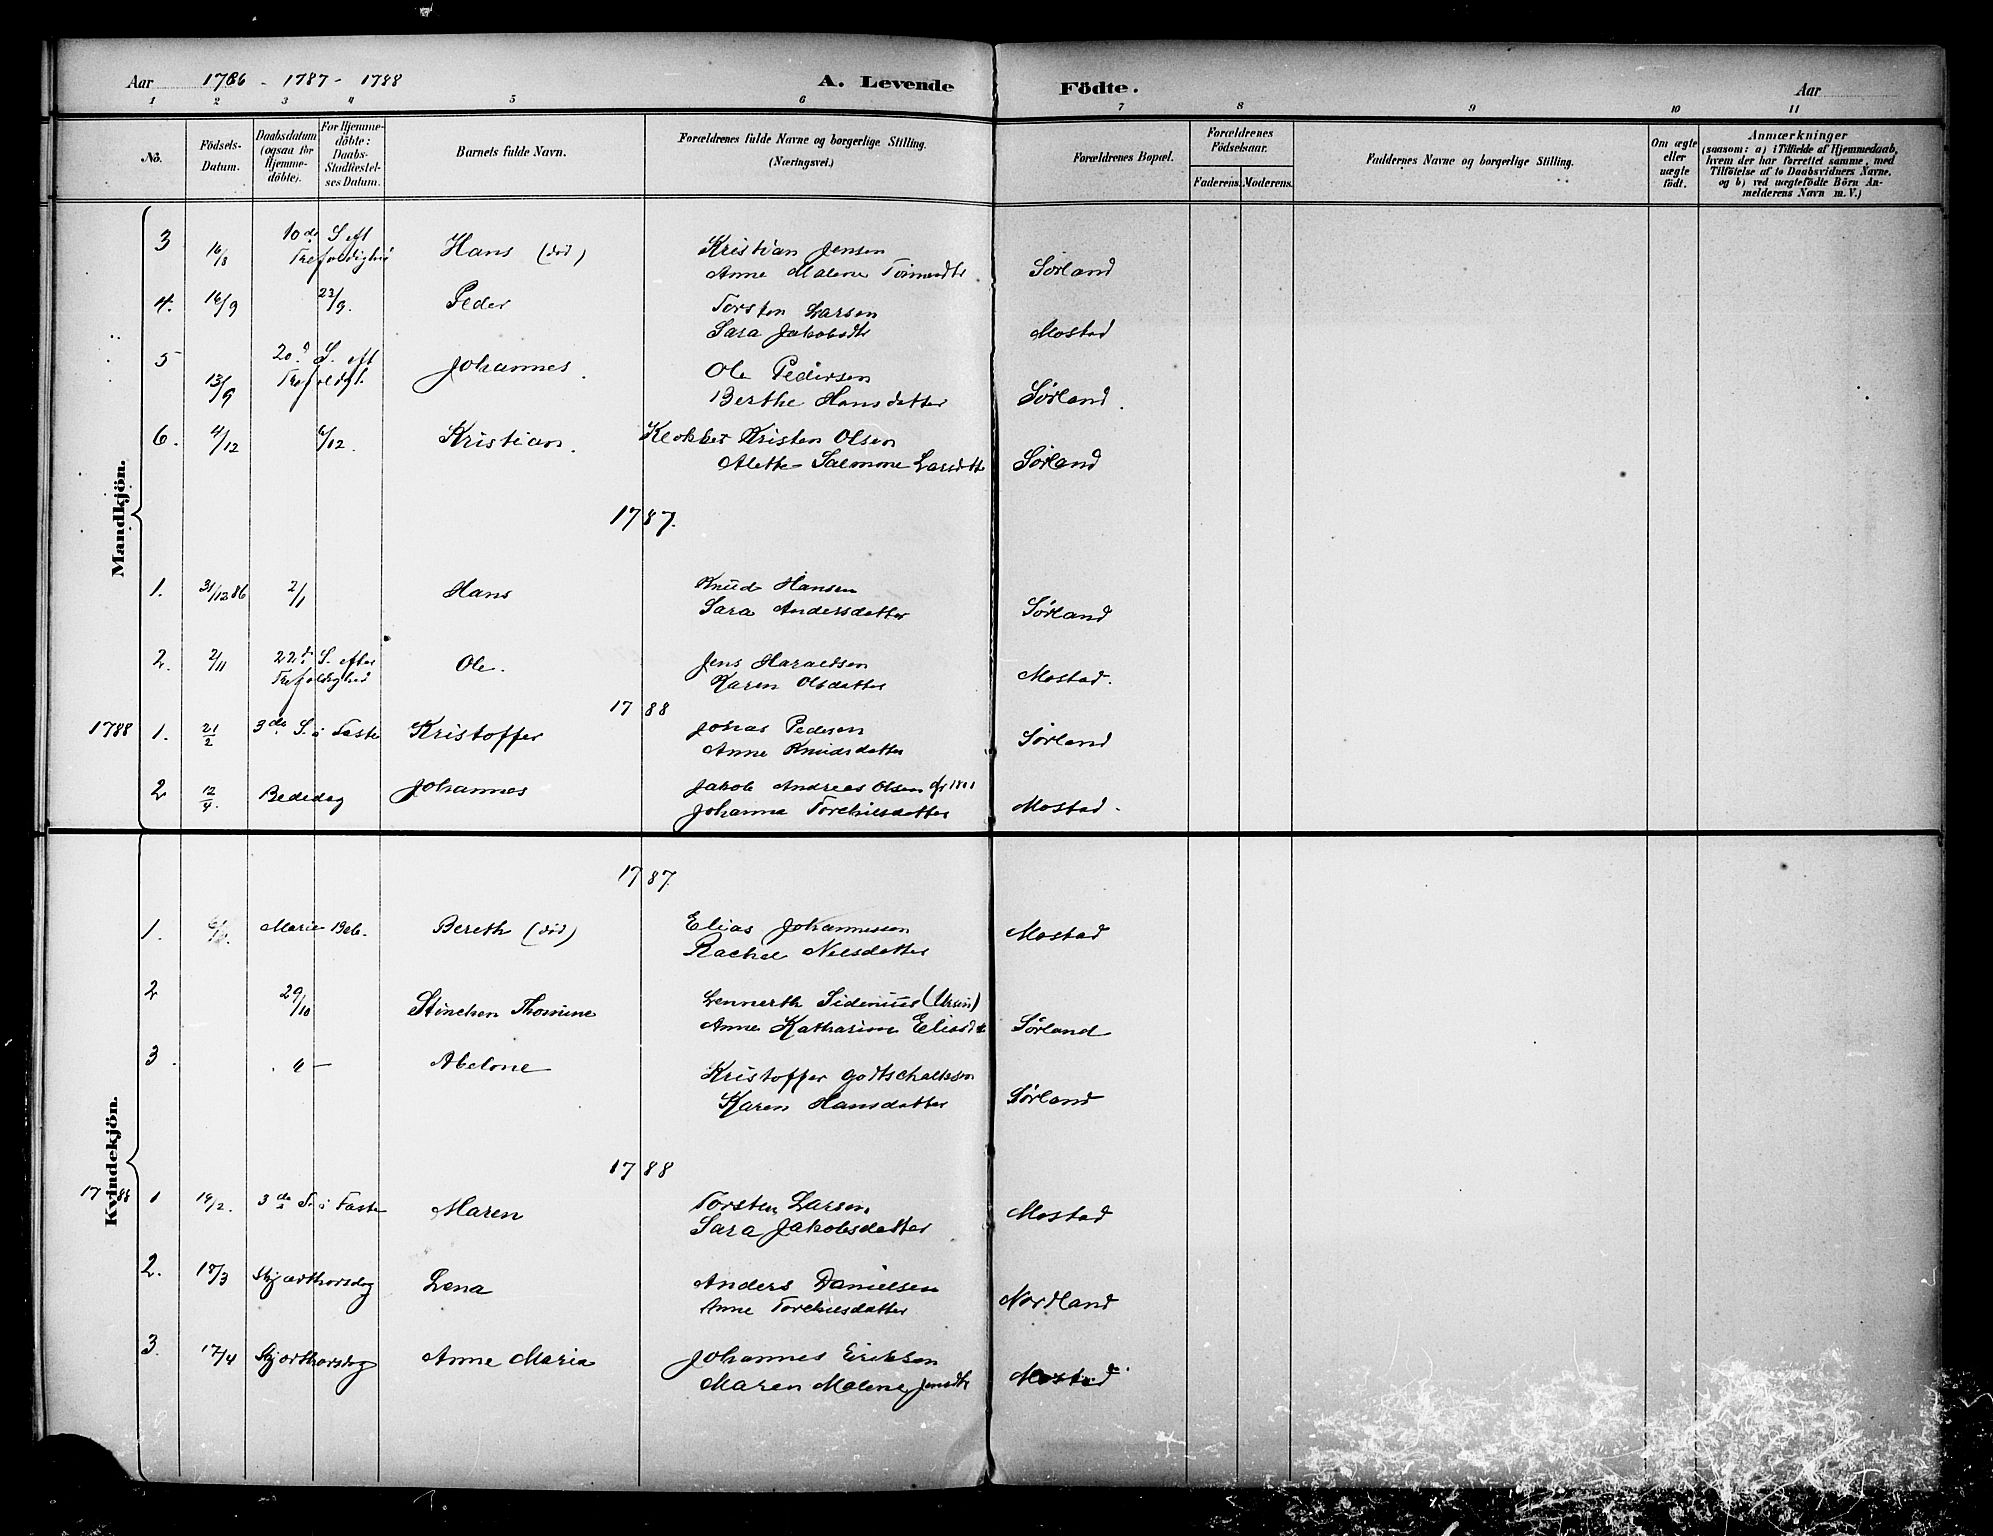 Aar 1786 - 1787 - 1788
A. Levende Födte.
Aar
1 2 3 4 5 6 7 8 9 10 11
No.
Födsels-
Datum.
Daabsdatum
(ogsaa for
Hjemme-
döbte).
For Hjemme-
döbte:
Daabs-
Stadfæstel-
ses Datum.
Barnets fulde Navn.
Forældrenes fulde Navne og borgerlige Stilling.
(Næringsvei.)
Forældrenes Bopæl.
Forældrenes
Födselsaar.
Faderens. Moderens.
Faddernes Navne og borgerlige Stilling.
Om ægte
eller
uægte
födt.
Anmærkninger
(saasom: a) i Tilfælde af Hjemmedaab,
hvem der har forrettet samme, med
Tilföielse af to Daabsvidners Navne,
og b) ved uægtefödte Börn An-
melderens Navn m. V.)
Mandkjön.
3 16/8 10de S. eft Hans (död) Kristian Jensen
Trefoldighed Anne Malene Tormodsdtr Sørland
4. 16/9 23/9. Peder Torsten Larsen
Sara Jakobsdtr Mostad
5 13/9 20d S. eft Johannes. Ole Pedersen
Trefoldgh. Berthe Hansdatter Sørland.
6. 4/12 6/12. Kristian. Klokker Kristen Olsen
Alette Salomine Larsdtr Sørland
1787.
1. 31/12 86 2/1 Hans Knud Hansen
Sara Andersdatter Sørland
2. 2/11 22d S. efter Ole. Jens Haraldsen
Trefoldighed Karen Olsdatter Mostad.
1788
1788 1. 21/2 3de S. i Faste Kristoffer Johas Pedersen
Anne Knudsdatter Sørland
2 12/4. Bededag Johannes Jakob Andreas Olsen
Johanna Torchilsdatter Mostad.
Kvindekjön.
1787.
1. Marie Beb. Bereth (död) Elias Johannessen
Rachel Nilsdatter Mostad
2 29/10 Stinchen Thomine Lennerth Sidenius (Ursin)
Anne Katharine Eliasdt Sørland
3. " — Abelone Kristoffer Godtschalksen
Karen Hansdatter Sørland
1788
1788 1 19/2. 3de S. i Faste Maren Torsten Larsen
Sara Jakobsdatter Mostad
2. 17/3 Skjærthorsdag Lena Anders Danielsen
Anne Torchilsdatter Nordland
3. 17/4 Skjærthorsdag Anne Maria Johannes Eriksen
Maren Malene Jensdtr Mostad